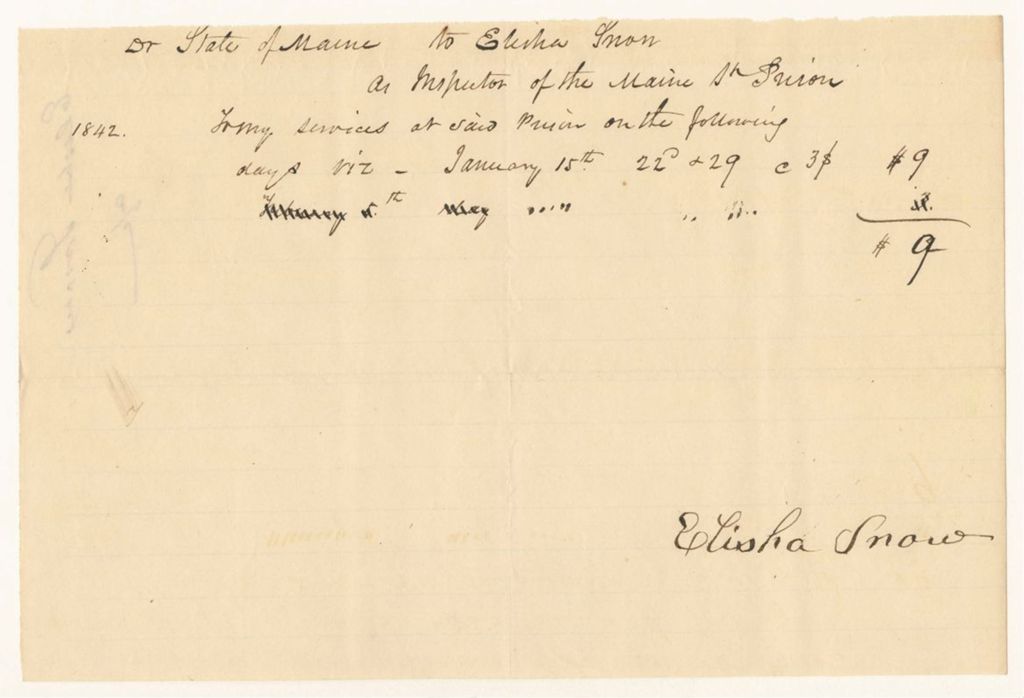 Dr State of Maine to Elisha Snow
as Inspector of the Maine St Prison
1842. For my services at said Prison on the following
days viz - January 15th 22d & 29 c 3$ $9
$ 9
Elisha Snow